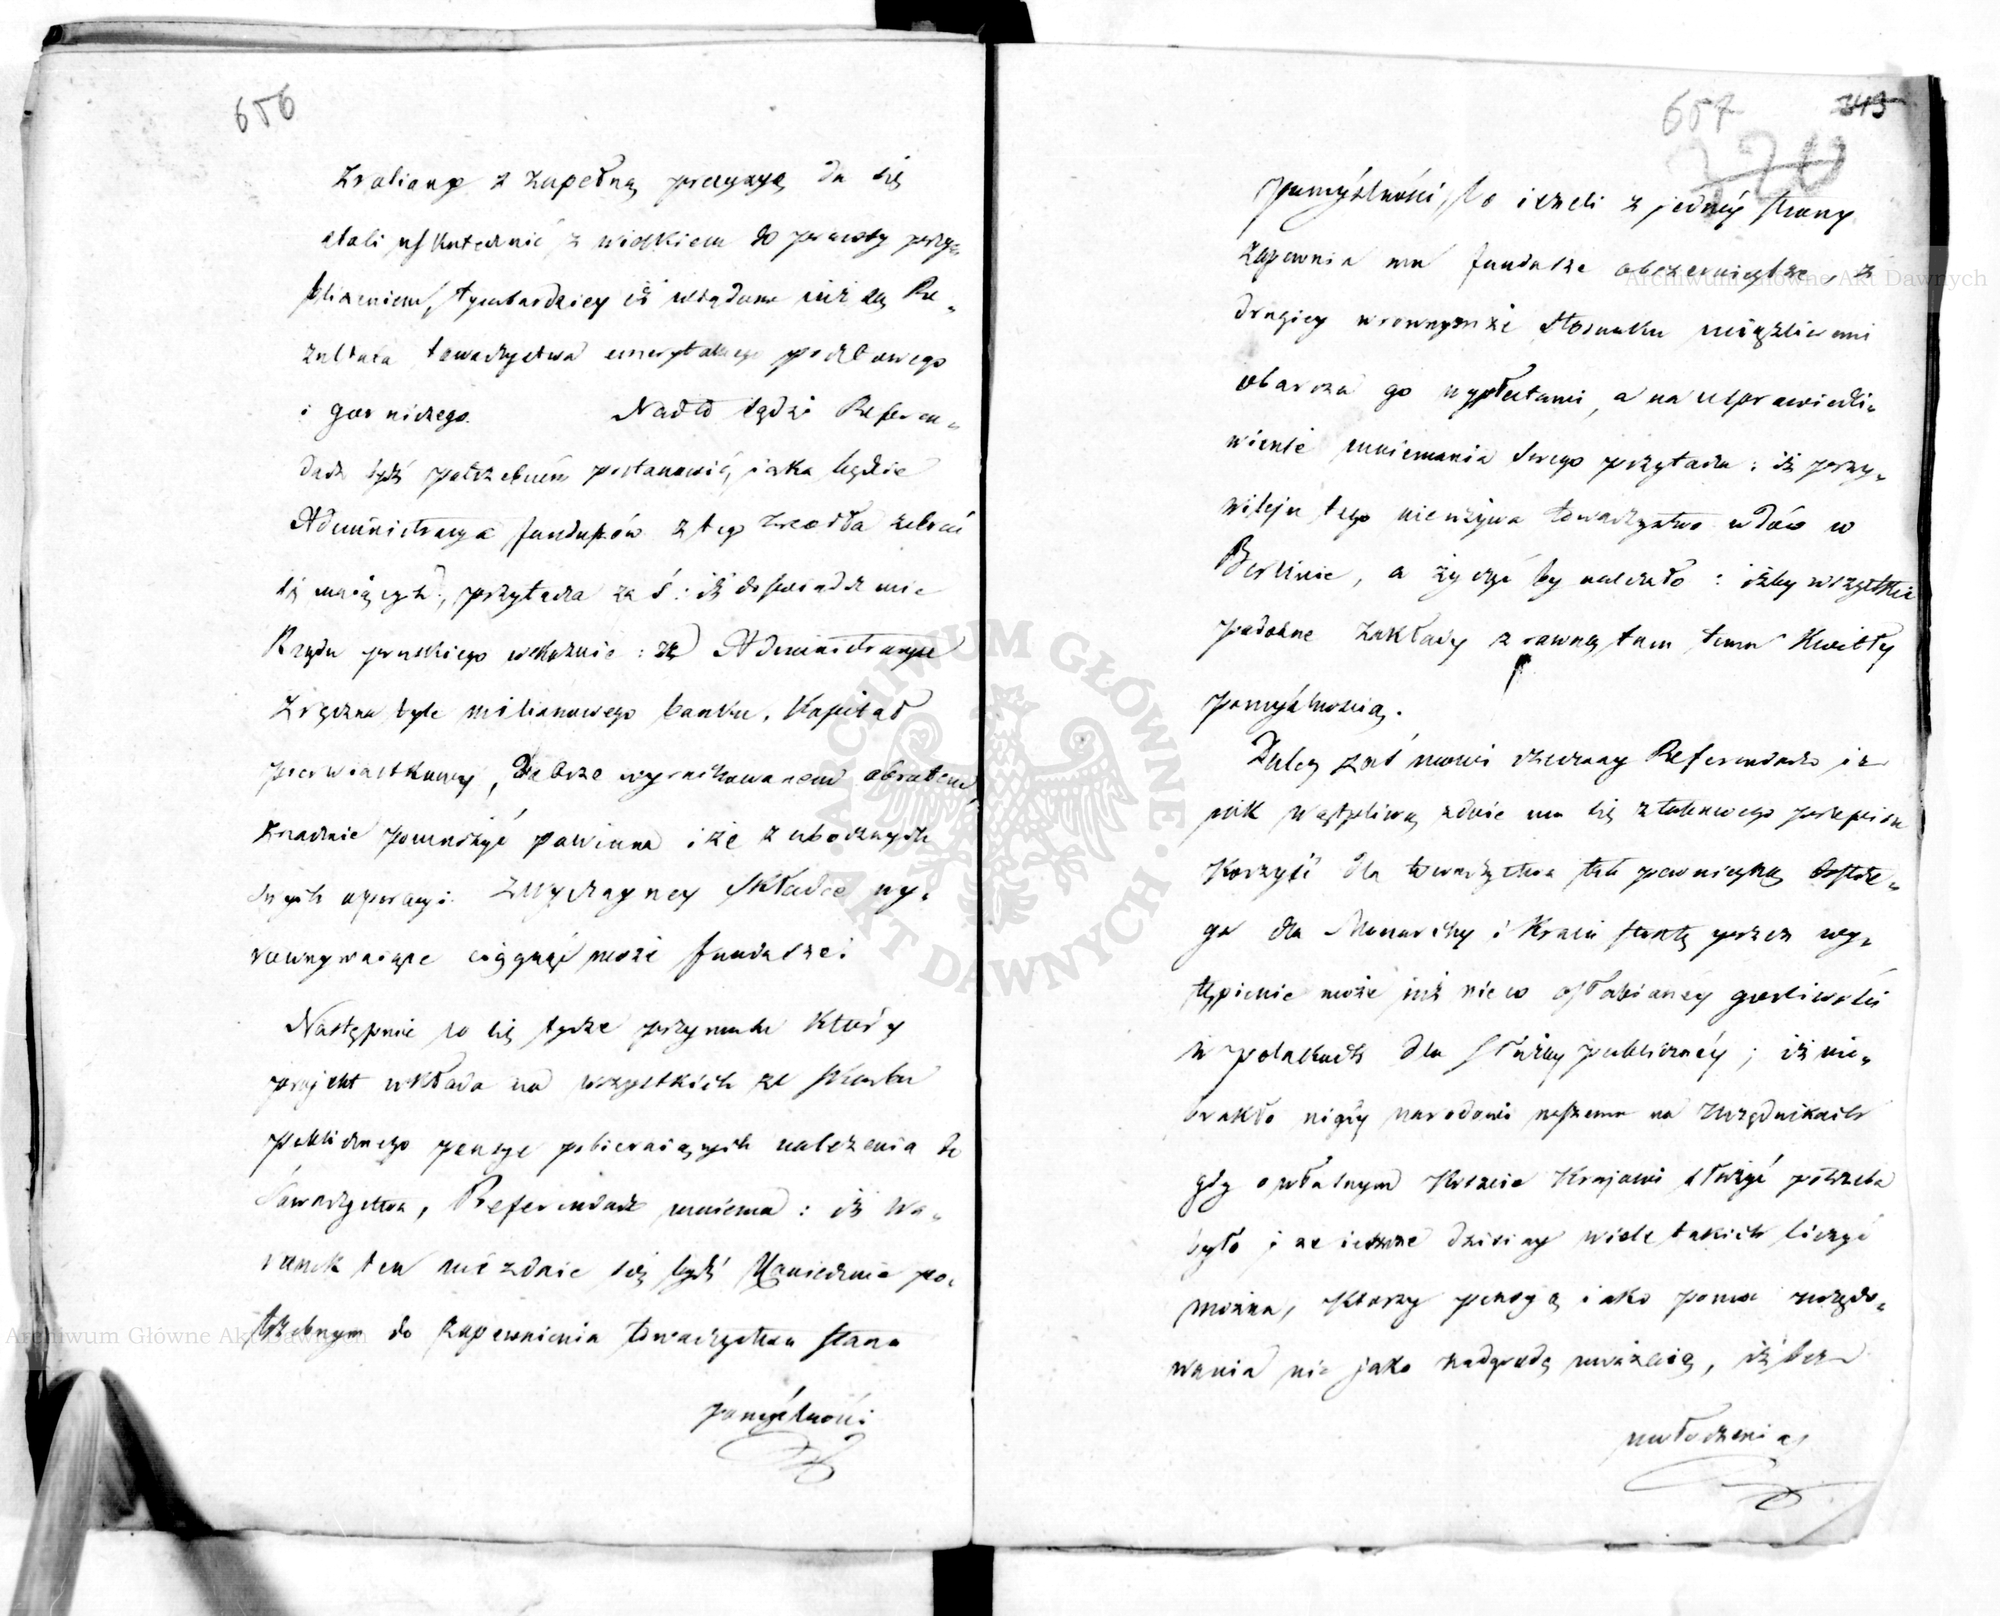 656
zrobiony z zupełną precyzyą da się
uskutecznić z wielkiem do prawdy przy„
bliżeniem, tymbardziey iż wiadome już są Re„
zultata towarzystwa emerytalnego pocztowego
i gorniczego. Nadto sądzi Referen„
darz bydź potrzebném postanowić, iaka będzie
Administracya funduszów z tego źrzodła zebrać
się maiących, przytacza zaś: iż doświadczenie
Rządu pruskiego wskazuie: że Administracya
zręczna tyle milionowego banku, Kapitał
pierwiastkowy, dobrze wyrachowanem obrotem,
znacznie pomnożyć powinna i że z ubocznych
swych operacyi zwyczayney składce wy„
rownywaiące ciągnąć może fundusze.
Następnie co się tycze przymusu który
projekt wkłada na wszystkich ze skarbu
publicznego pensye pobieraiących należenia do
Towarzystwa, Referendarz mniema: iż wa„
runek ten nie zdaie się bydź koniecznie po„
trzebnym do zapewnienia towarzystwu stanu
pomyślności
657
343
320
pomyślności, bo ieżeli z jednéy strony
zapewnia mu fundusze obszernieysze, z
drugiey w rownymże stosunku uciążliwemi
obarcza go wypłatami, a na usprawiedli„
wienie mniemania swego przytacza: iż przy„
wileju tego nieużywa towarzystwo wdów w
Berlinie, a życzyć by należało: iżby wszystkie
podobne zakłady z rowną tam temu kwitły
pomyślnością.
Daley zaś mowi rzeczony Referendarz iż
jak wątpliwą zdaie mu się z takowego przepisu
Korzyść dla towarzystwa tak pewnieyszą
dla Monarchy i Kraiu stratę przez wy„
stąpienie może już nie w osłabianéy gorliwości
w polakach dla służby publicznéy; iż nie„
brakło nigdy narodowi naszemu na Urzędnikach
gdy o własnym Koszcie Krajowi służyć potrzeba
było i że ieszcze dzisiay wiele takich liczyć
można, którzy pensyą iako pomoc urzędo„
wania nie jako nadgrodę uważaią, iż bez
umłodzenia